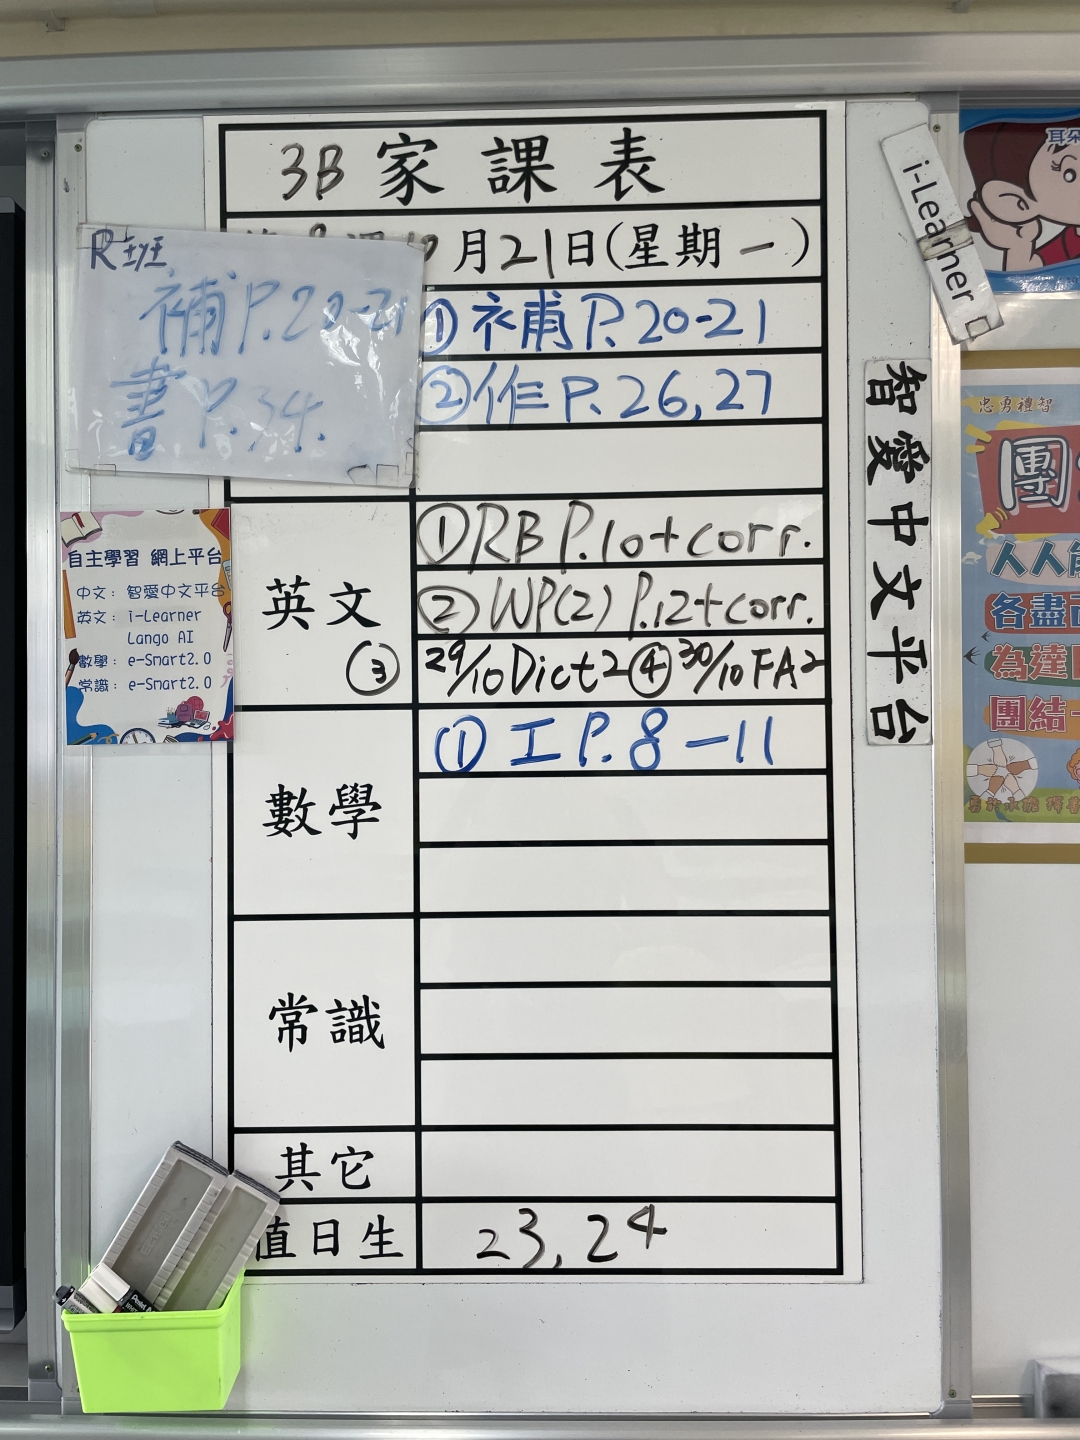 3B 家課表
月21日(星期一)
R班
補P.20-21
書P.34.
①補P.20-21
②作P.26,27
英文
①RB P.10+corr.
②WP(2) P.12+corr.
③ 29/10 Dict 2 ④ 30/10 FA2
數學
①工P.8-11
常識
其它
值日生
23,24
自主學習 網上平台
中文：智愛中文平台
英文：i-Learner
Lango AI
數學：e-Smart2.0
常識：e-Smart2.0
i-Learner
智愛中文平台
耳朵
忠勇禮智
團
人人
各盡
為達
團結